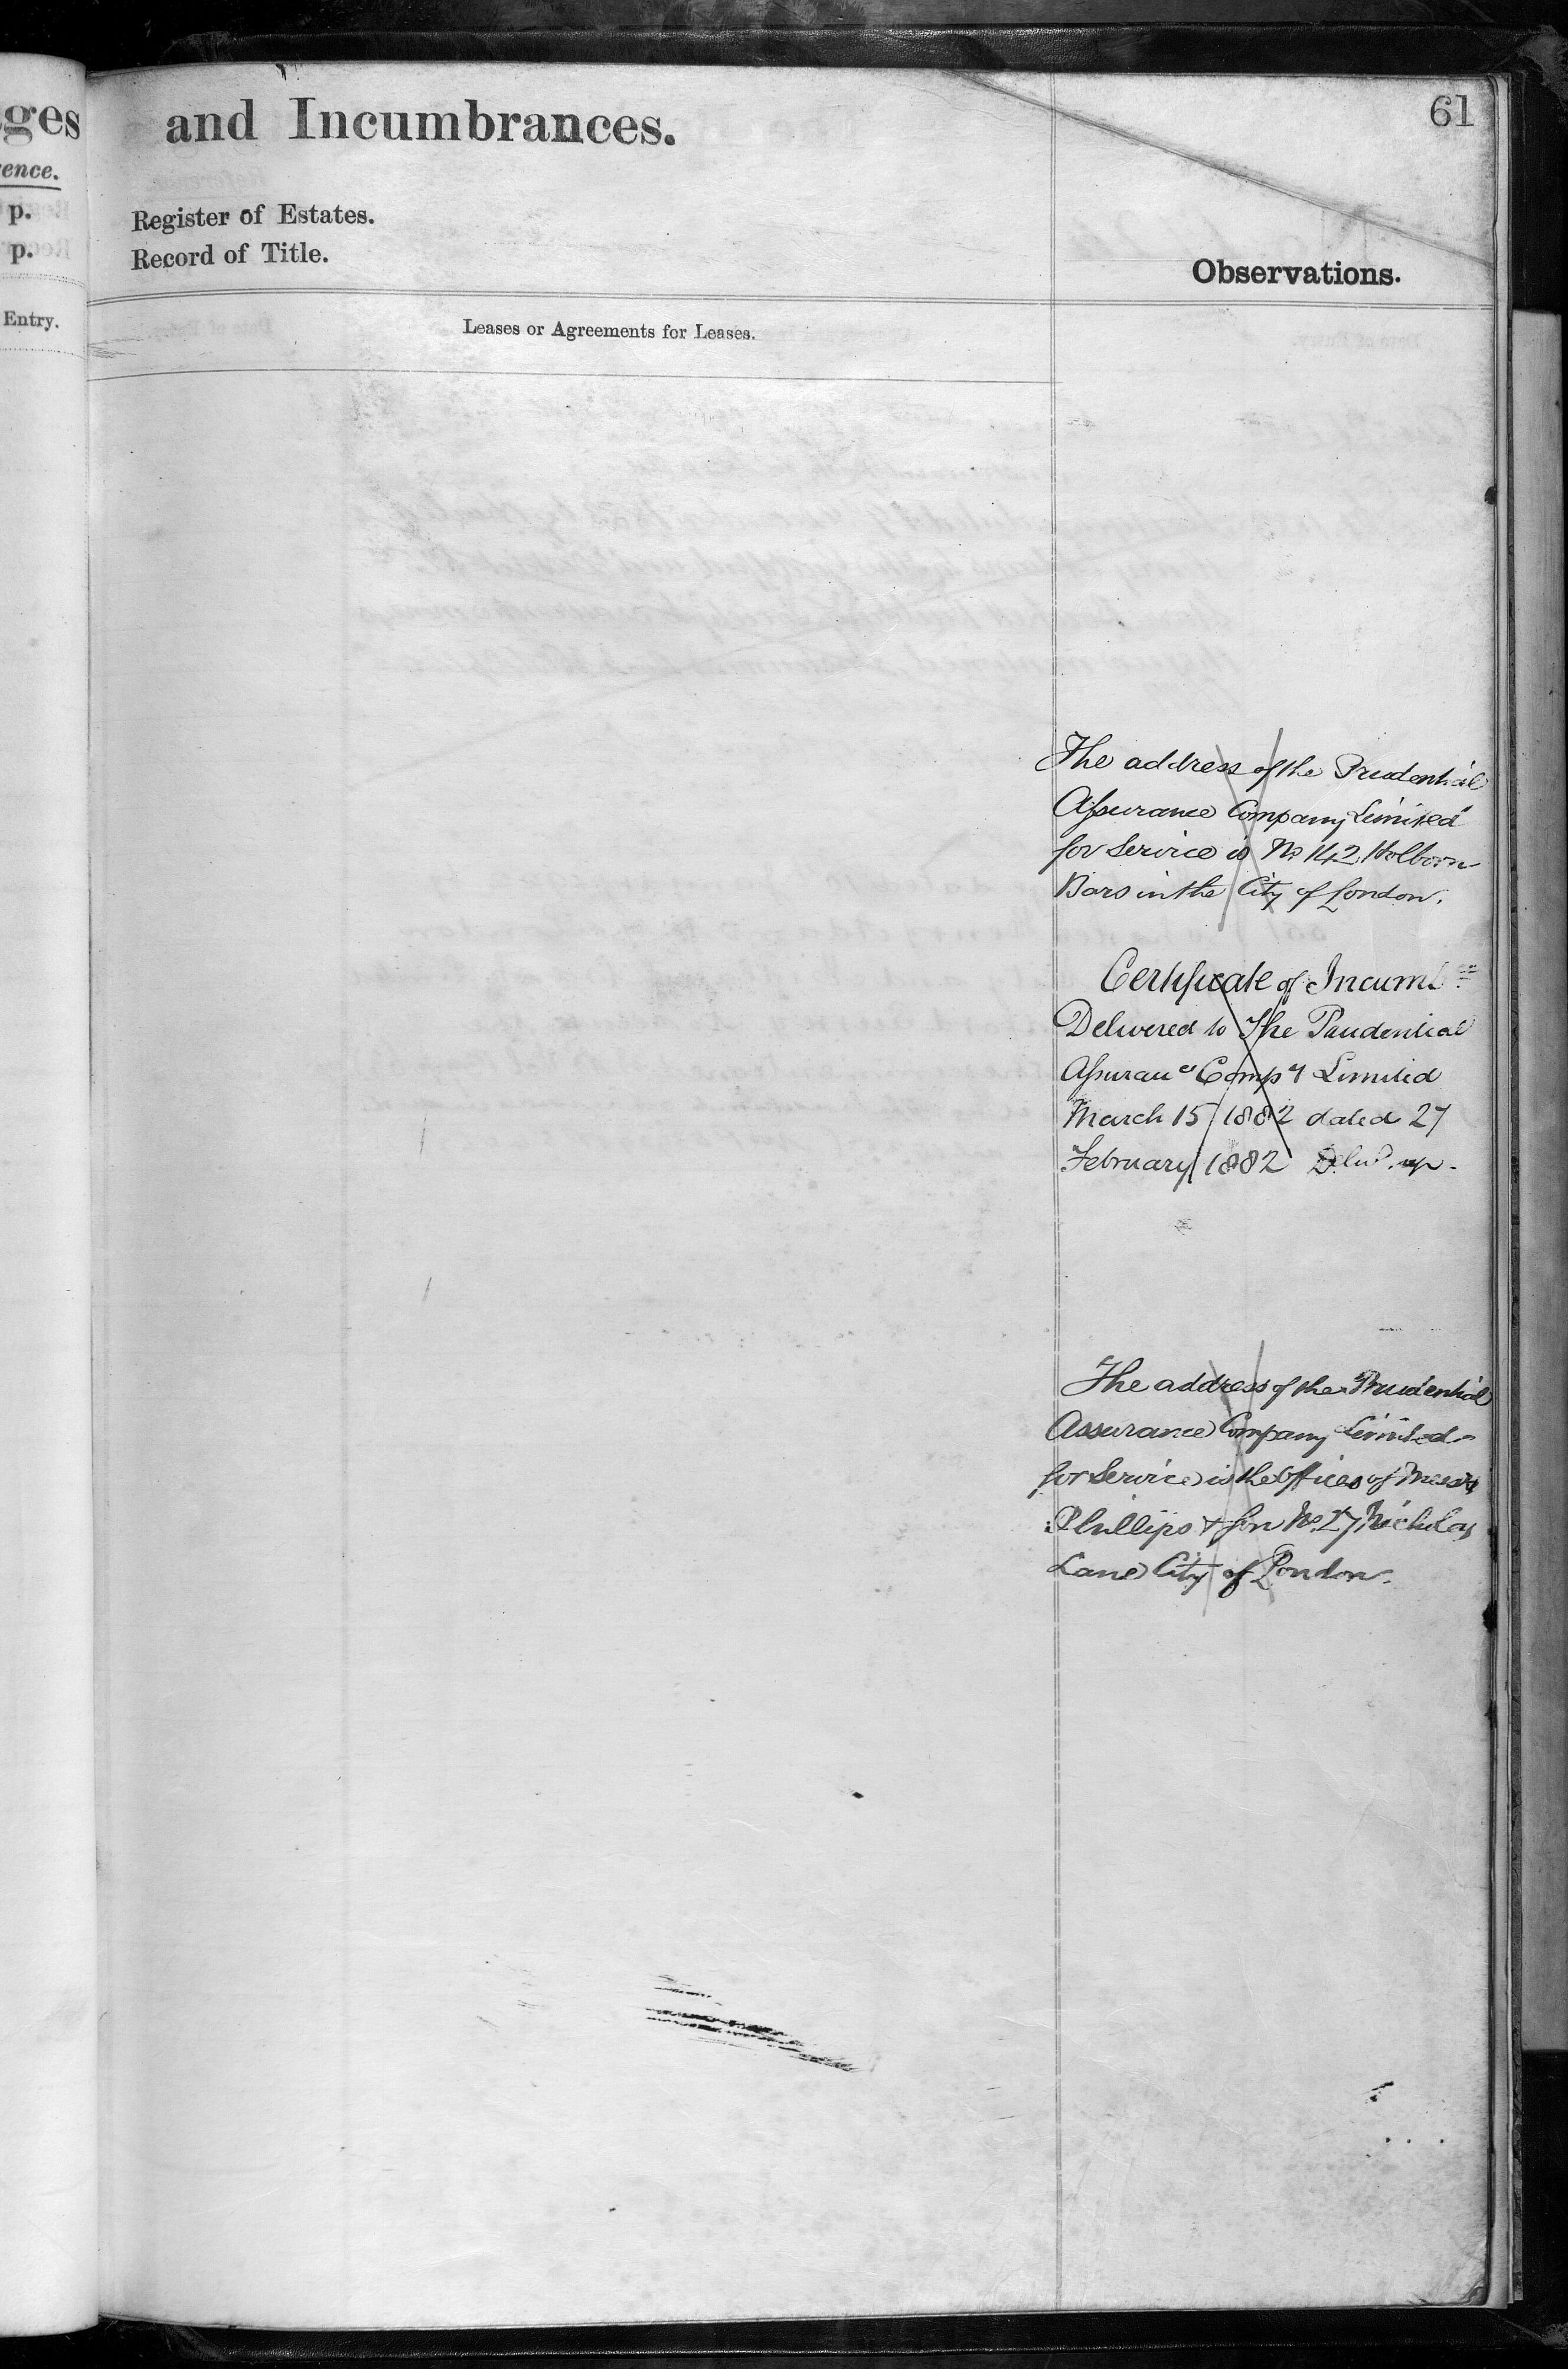 61
and Incumbrances.
Register of Estates.
Record of Title.
Observations.
Leases or Agreements for Leases.
ges
ence.
p.
p.
Entry.
The address of the Prudential
Assurance Company Limited
for Service is No 142 Holborn
Bars in the City of London.
Certificate of Incumb
Delivered to The Prudential
Assurance Compy Limited
March 15 1882 dated 27
February 1882 Delivd. up.
The address of the Prudential
Assurance Company Limited
for Service is the Offices of Messrs
Phillips & Son No. 27 Nicholas
Lane City of London.